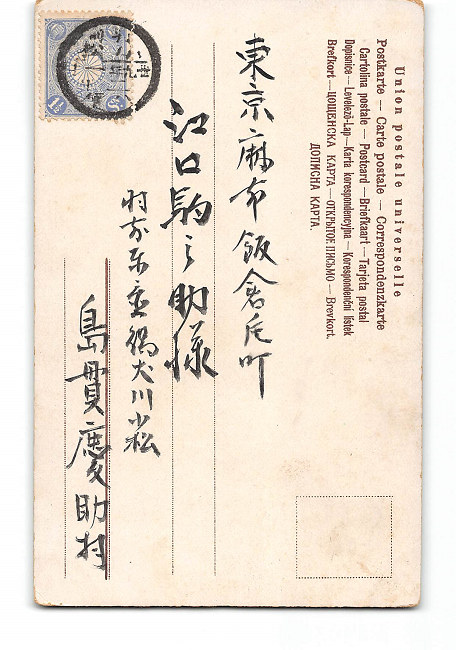 Union postale universelle
Postkarte — Carte postale — Correspondenzkarte
Cartolina postale — Postcard — Briefkaart — Tarjeta postal
Dopisnice — Levelező-Lap — Karta korespondencyjna — Korespondenční listek
Brefkort — ЦОЩЕНСКА КАРТА — ОТКРЫТОЕ ПИСЬМО — Brevkort.
ДОПИСНА КАРТА.
東京麻布飯倉片町
江口駒之助様
羽前東置賜犬川小松
島貫慶助
1½ Sn